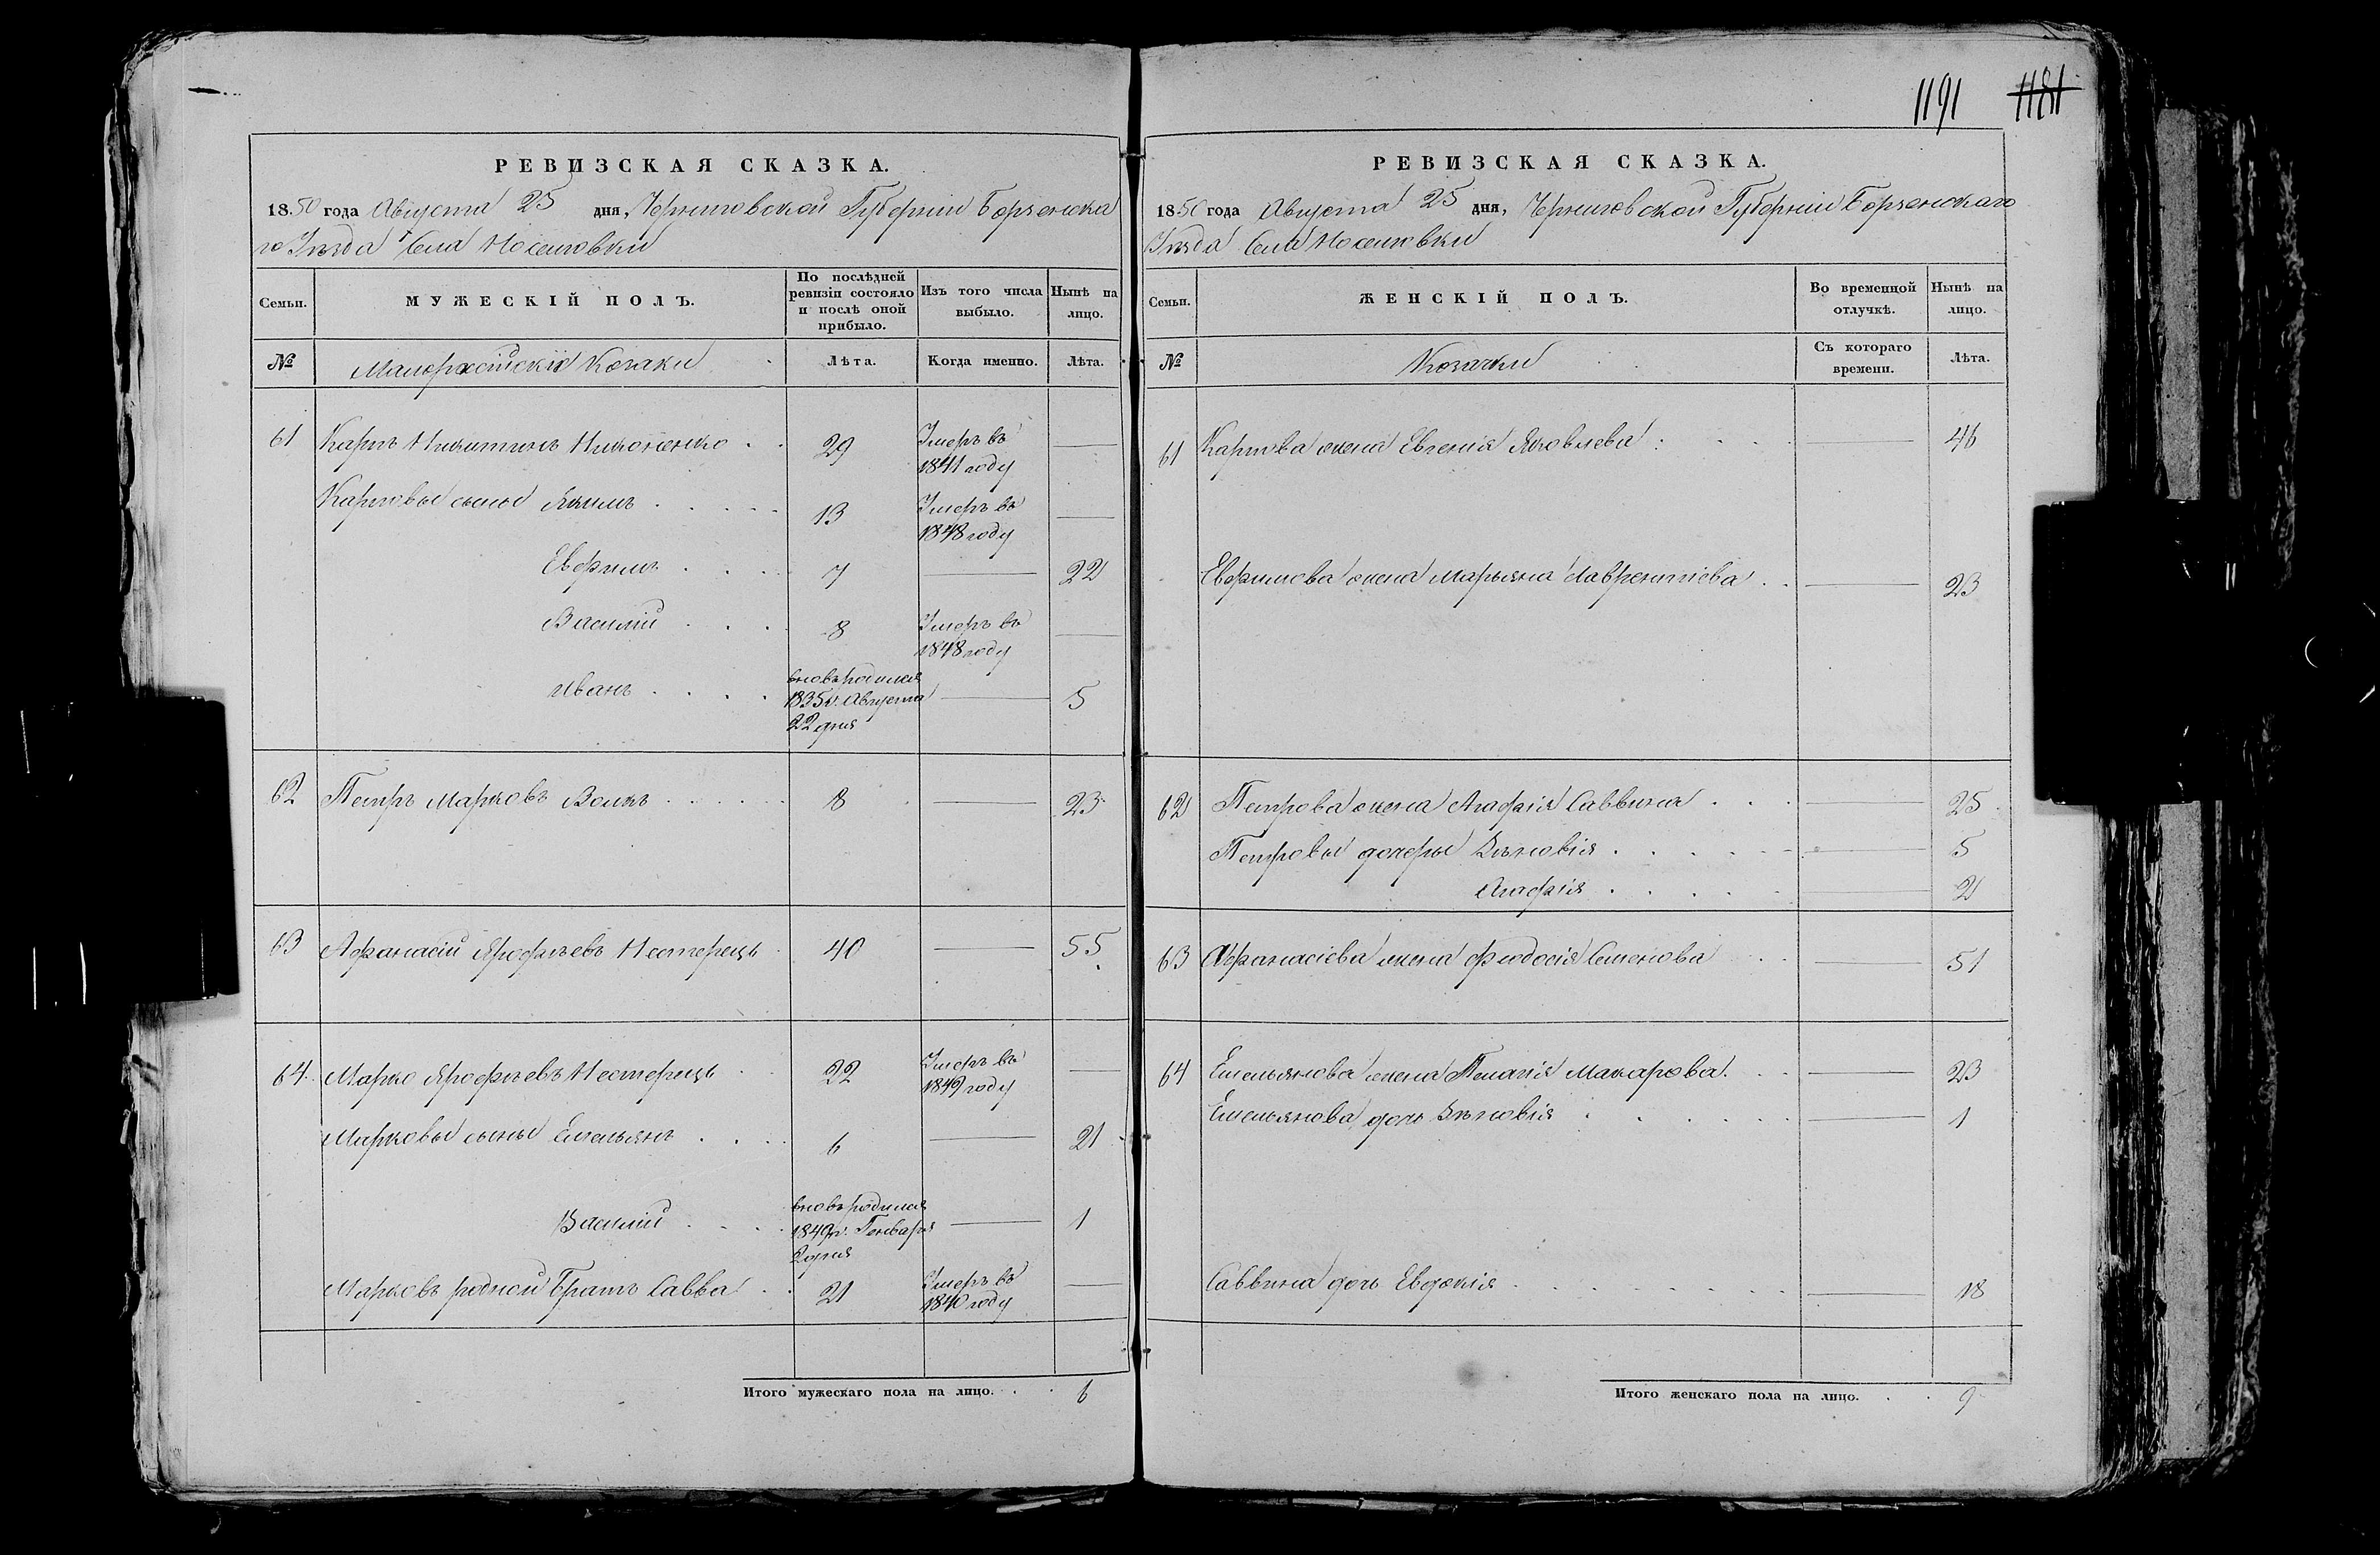 РЕВИЗСКАЯ СКАЗКА.
1850 года Августа 25 дня, Черниговской Губернии Борзенска
го Уезда Села Носелевки
Семьи.
МУЖЕСКІЙ ПОЛЪ.
По послѣдней ревизіи состояло и послѣ оной прибыло.
Изъ того числа выбыло.
Нынѣ на лицо.
№
Малороссійскіе Козаки
Лѣта.
Когда именно.
Лѣта.
61 Карпъ Никитинъ Никоненко . . 29 Умеръ въ 1841 году —
Карповы сыны Якимъ . . . . 13 Умеръ въ 1848 году —
Евфимъ . . . 7 — 22
Василій . . . 8 Умеръ въ 1848 году —
Иванъ . . . . вновь родился 1835 г. Августа 22 дня — 5
62 Петръ Марковъ Волкъ . . . . . 8 — 23
63 Афанасій Ярофѣевъ Нестерецъ 40 — 55
64 Марко Ярофѣевъ Нестерецъ . . 22 Умеръ въ 1849 году —
Марковы сыны Емельянъ . . . 6 — 21
Василій . . . . вновь родился 1849 г. Генваря — 1
Марковъ родной братъ Савва . . 21 Умеръ въ 1840 году —
Итого мужескаго пола на лицо. . . 6
1191 1181
РЕВИЗСКАЯ СКАЗКА.
1850 года Августа 25 дня, Черниговской Губерніи Борзенскаго
Уѣзда Села
Семьи.
ЖЕНСКІЙ ПОЛЪ.
Во временной отлучкѣ.
Нынѣ на лицо.
№
Козачки
Съ котораго времени.
Лѣта.
61 Карпова жена Евгенія Яковлева . . . — 46
Евфимова жена Марьяна Лаврентіева . . — 23
62 Петрова жена Агафія Саввина . . . — 25
Петровы дочеры Зѣновія . . . . . — 5
Агафія . . . . . — 2
63 Афанасіева жена Феодосія Семенова . . — 51
64 Емельянова жена Пелагія Макарова . . — 23
Емельянова дочь Зѣновія . . . . . — 1
Саввина дочь Евдокія . . . . . . . — 18
Итого женскаго пола на лицо. . . 9